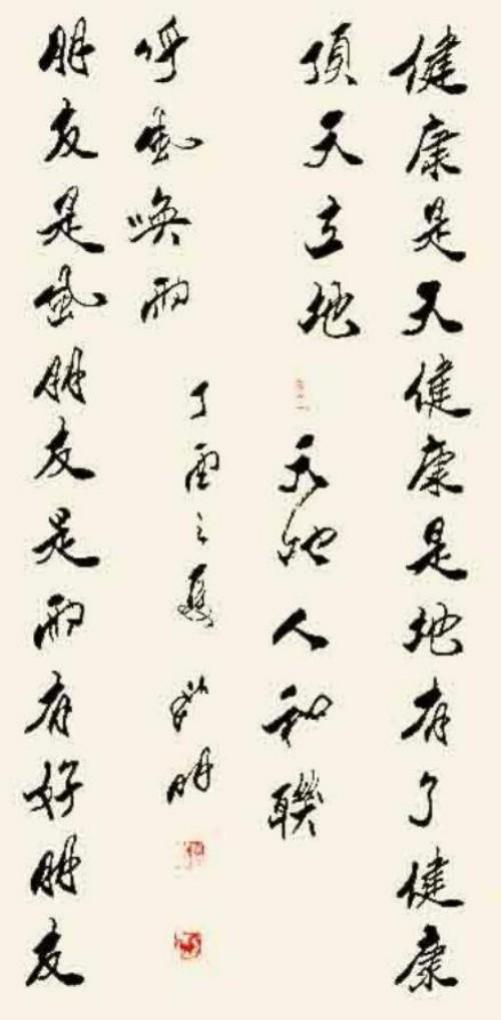 健康是天健康是地有了健康
頂天立地
天地人和聯
朋友是風朋友是雨有好朋友
呼風喚雨
丁酉之夏
明